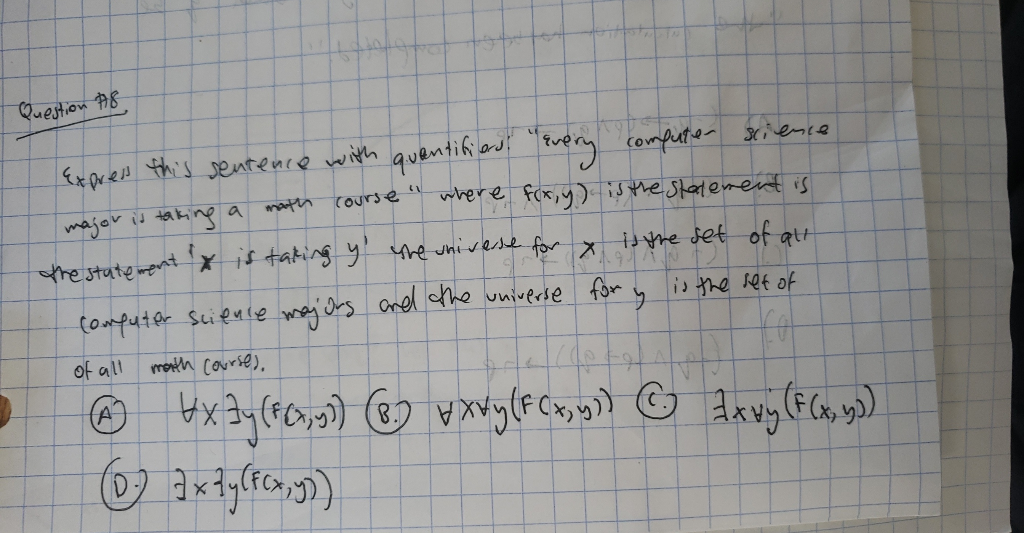 Question #8.
Express this sentence with quantifiers: "Every computer science
major is taking a math course" where F(x,y) is the statement is
the statement 'x is taking y' the universe for x is the set of all
computer science majors and the universe for y is the set of
of all math courses.
(A) ∀x∃y(F(x,y)) (B.) ∀x∀y(F(x,y)) (C.) ∃x∀y(F(x,y))
(D.) ∃x∃y(F(x,y))